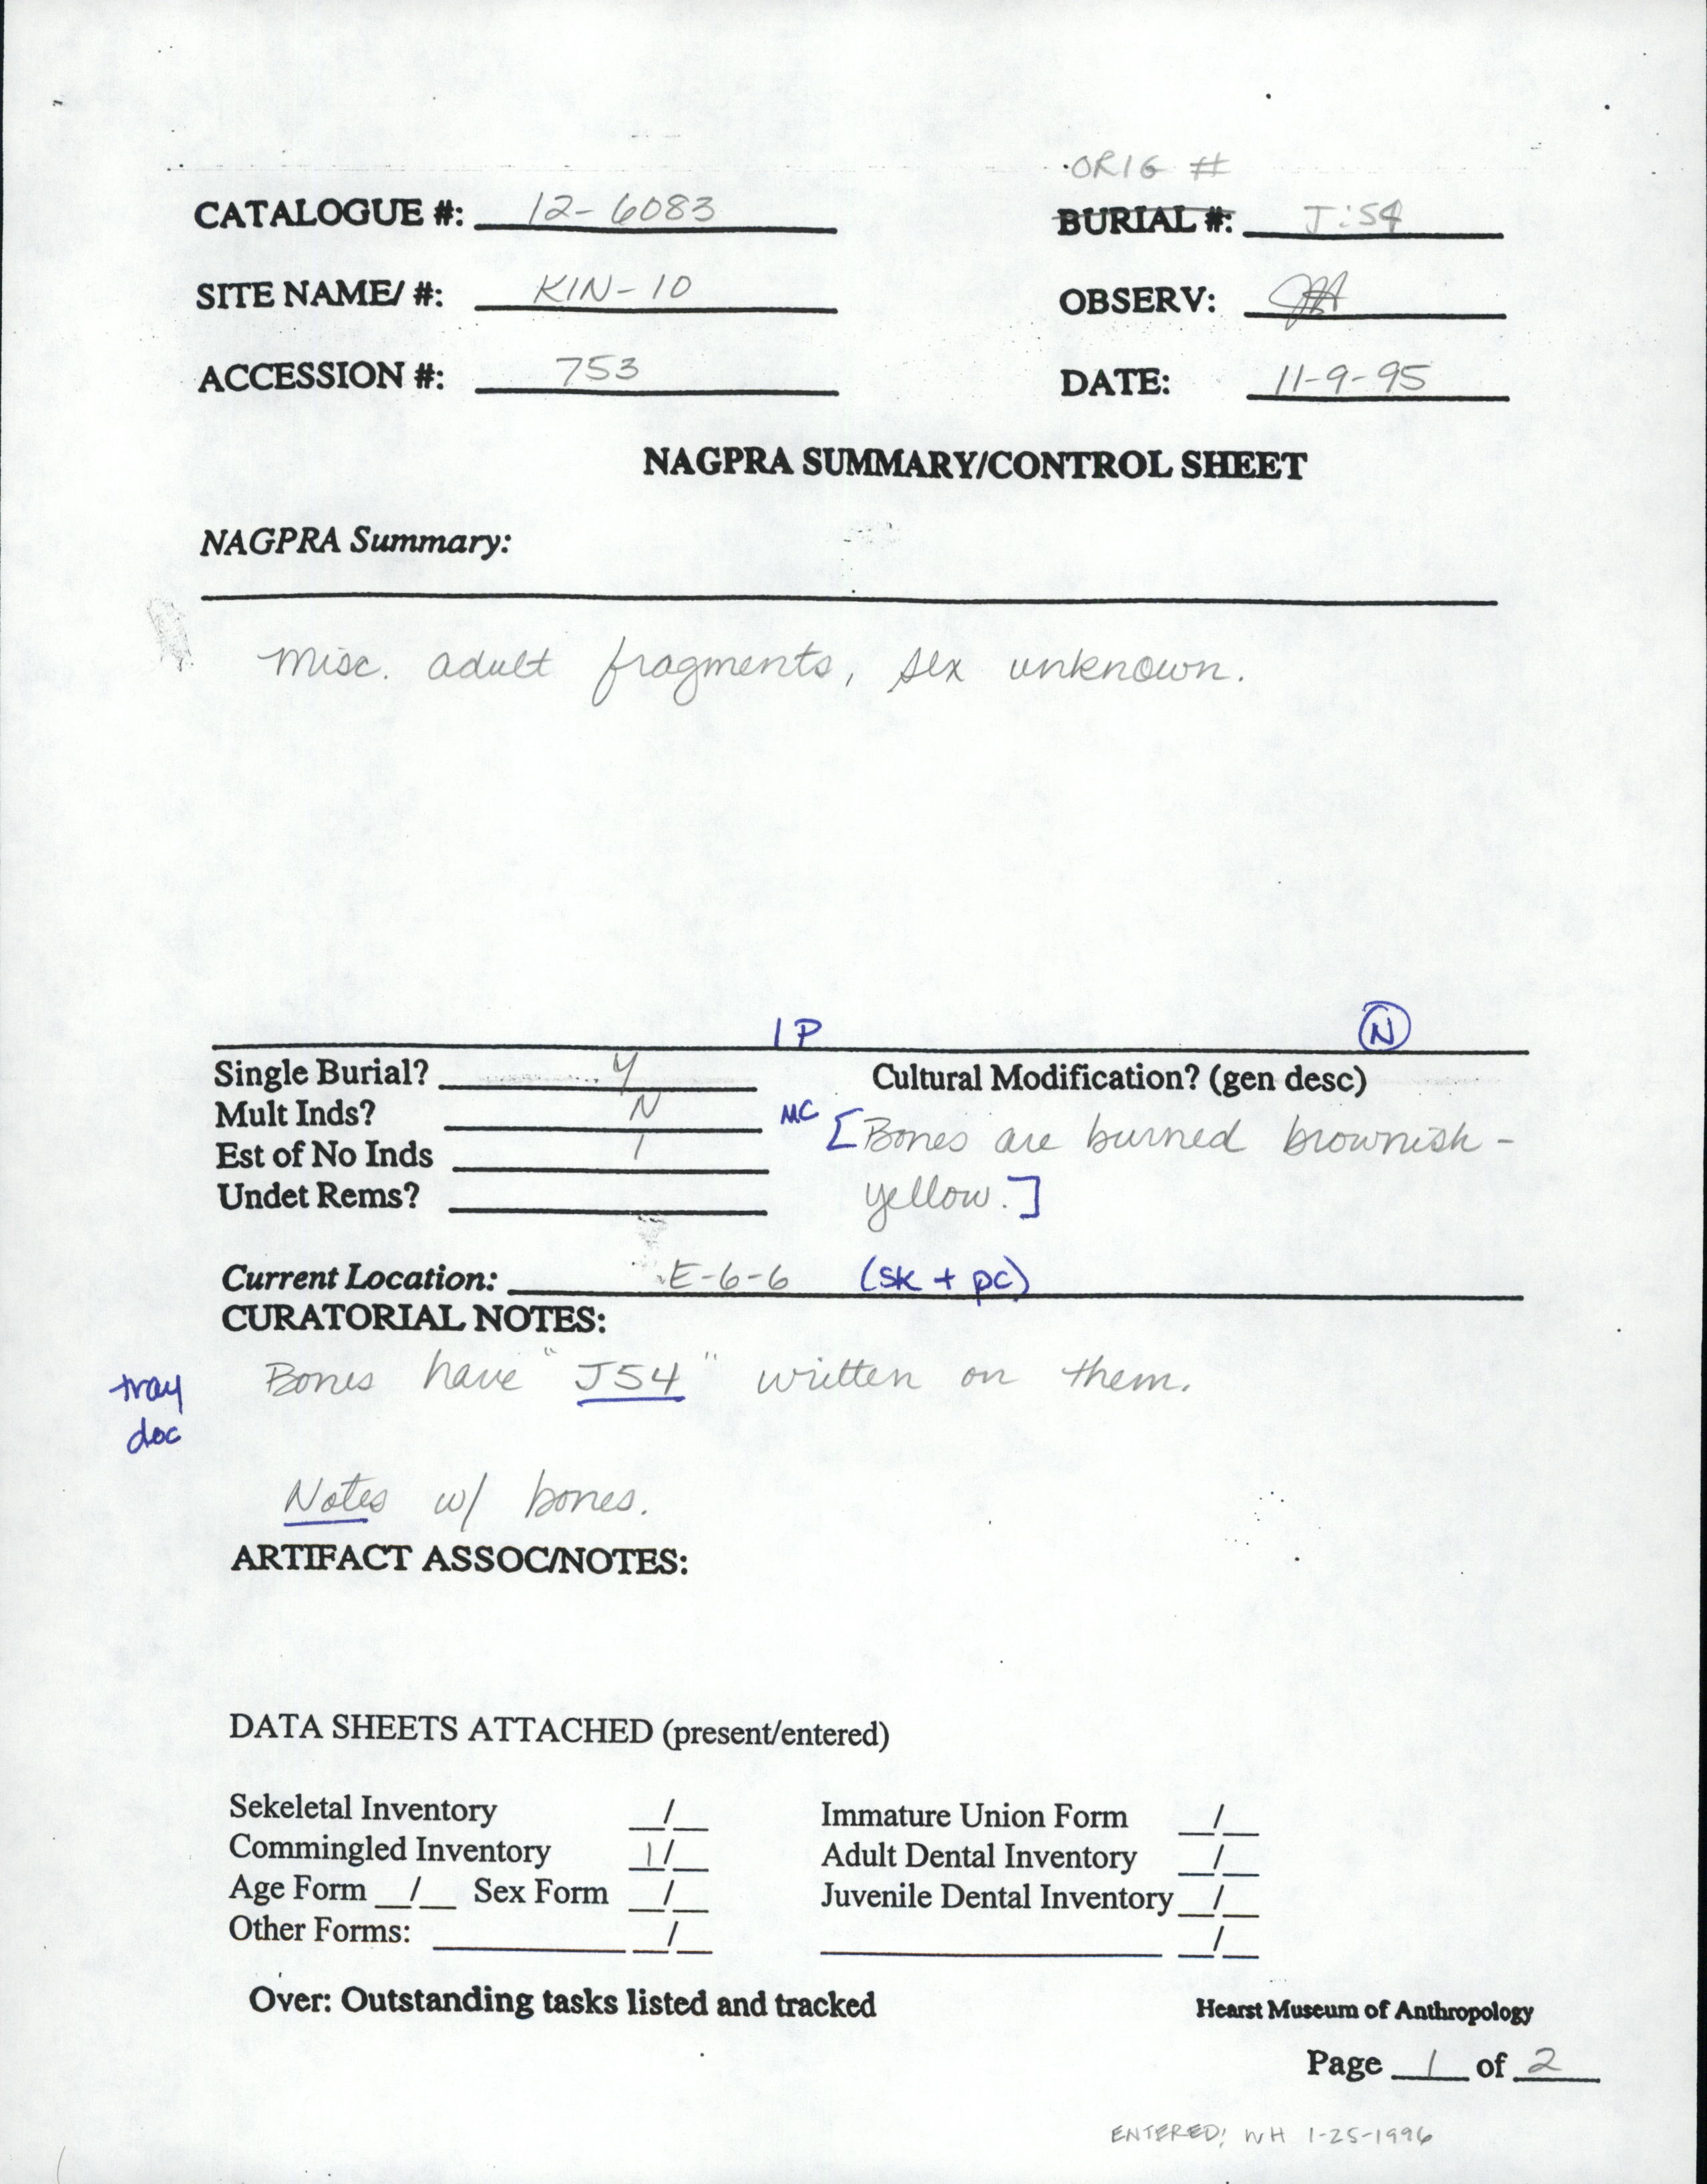 ORIG #
CATALOGUE #: 12-6083 BURIAL #: J:54
SITE NAME/ #: KIN-10 OBSERV:
ACCESSION #: 753 DATE: 11-9-95
NAGPRA SUMMARY/CONTROL SHEET
NAGPRA Summary:
Misc. adult fragments, sex unknown.
1 P N
Single Burial? Y Cultural Modification? (gen desc)
Mult Inds? N MC [Bones are burned brownish-
Est of No Inds 1
Undet Rems? yellow.]
Current Location: E-6-6 (sk + pc)
CURATORIAL NOTES:
tray Bones have "J54" written on them.
doc
Notes w/ bones.
ARTIFACT ASSOC/NOTES:
DATA SHEETS ATTACHED (present/entered)
Sekeletal Inventory __/__ Immature Union Form __/__
Commingled Inventory 1/__ Adult Dental Inventory __/__
Age Form __/__ Sex Form __/__ Juvenile Dental Inventory __/__
Other Forms: __/__ __/__
Over: Outstanding tasks listed and tracked Hearst Museum of Anthropology
Page 1 of 2
ENTERED: WH 1-25-1996